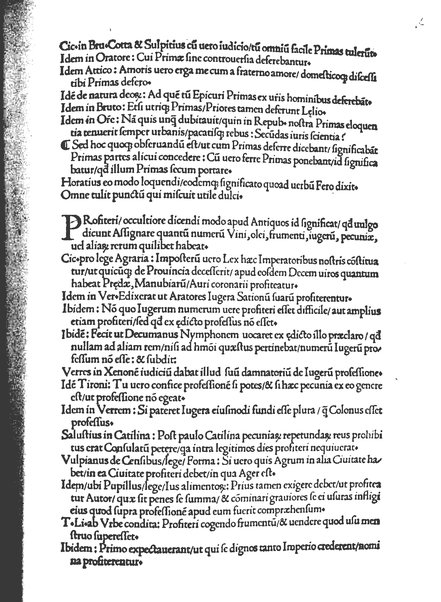 Cic•in Bru•Cotta & Sulpitius cū uero iudicio/tū omniū facile Primas tulerūt•
Idem in Oratore: Cui Primæ sine controuersia deferebantur•
Idem Attico: Amoris uero erga me cum a fraterno amore/ domesticoq; discessi
tibi Primas defero•
Idē de natura deoȝ: Ad quē tū Epicuri Primas ex uris hominibus deferebāt•
Idem in Bruto: Etsi utriq; Primas/Priores tamen deferunt Lęlio•
Idem in Ofē: Nā quis unq̄ dubitauit/quin in Repub• nostra Primas eloquen
tia tenuerit semper urbanis/pacatisq; rebus: Secūdas iuris scientia?
¶ Sed hoc quoq; obseruandū est/ut cum Primas deferre dicebant/ significabāt
Primas partes alicui concedere: Cū uero ferre Primas ponebant/id significa
batur/qd illum Primas secum portare•
Horatius eo modo loquendi/eodemq; significato quoad uerbū Fero dixit•
Omne tulit punctū qui miscuit utile dulci•
PRofiteri/occultiore dicendi modo apud Antiquos id significat/qd uulgo
dicunt Assignare quantū numerū Vini,olei,frumenti,iugerū, pecuniæ,
uel aliaȝ rerum quilibet habeat•
Cic•pro lege Agraria: Imposterū uero Lex hæc Imperatoribus nostris cōstitua
tur/ut quicūq; de Prouincia decesserit/apud eosdem Decem uiros quantum
habeat Prędæ,Manubiarū/Auri coronarii profiteatur•
Idem in Ver•Edixerat ut Aratores Iugera Sationū suarū profiterentur•
Ibidem: Nō quo Iugerum numerum uere profiteri esset difficile/aut amplius
etiam profiteri/sed qd ex ędicto professus nō esset•
Ibidē: Fecit ut Decumanus Nymphonem uocaret ex ędicto illo præclaro/ qd
nullam ad aliam rem/nisi ad hmōi quæstus pertinebat/numerū Iugerū pro
fessum nō esse: & subdit:
Verres in Xenonē iudiciū dabat illud suū damnatoriū de Iugerū professione•
Idē Tironi: Tu uero confice professionē si potes/& si hæc pecunia ex eo genere
est/ut professione nō egeat•
Idem in Verrem: Si pateret Iugera eiusmodi fundi esse plura/q̄ Colonus esset
professus•
Salustius in Catilina: Post paulo Catilina pecuniaȝ repetundaȝ reus prohibi
tus erat Consularū petere/qa intra legitimos dies profiteri nequiuerat•
Vulpianus de Censibus/lege/Forma: Si uero quis Agrum in alia Ciuitate ha•
bet/in ea Ciuitate profiteri debet/in qua Ager est•
Idem/ubi Pupillus/lege/Ius alimentoȝ: Prius tamen exigere debet/ut profitea
tur Autor/ quæ sit penes se summa/& cōminari grauiores se ei usuras infligi
eius quod supra professionē apud eum fuerit comprӕhensum•
T•Li•ab Vrbe condita: Profiteri cogendo frumentū/& uendere quod usu men
struo superesset•
Ibidem: Primo expectauerant/ut qui se dignos tanto Imperio crederent/nomi
na profiterentur•